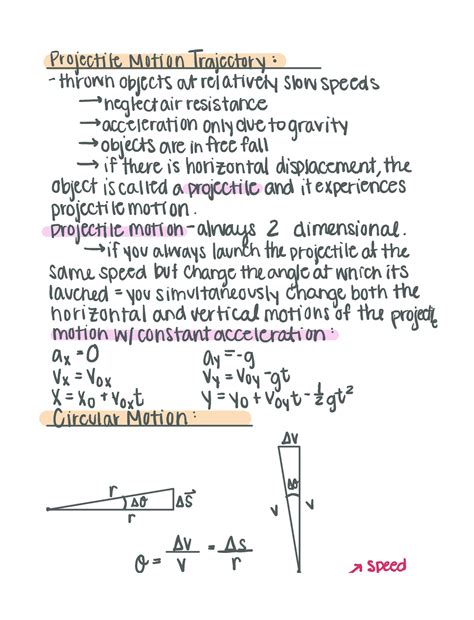 Projectile Motion Trajectory:
-thrown objects at relatively slow speeds
→neglect air resistance
→acceleration only due to gravity
→objects are in free fall
→ if there is horizontal displacement, the
object is called a projectile and it experiences
projectile motion.
projectile motion-always 2 dimensional.
→if you always launch the projectile at the
same speed but change the angle at which its
lauched = you simultaneously change both the
horizontal and vertical motions of the projectile
motion w/constant acceleration:
aₓ=0 a_y=-g
Vₓ=V₀ₓ V_y=V₀y-gt
X=X₀+V₀ₓt Y=Y₀+V₀yt-½gt²
Circular Motion:
Δv
r Δθ Δs⃗
r
v Δθ v
θ = Δv/v = Δs/r
↗ speed